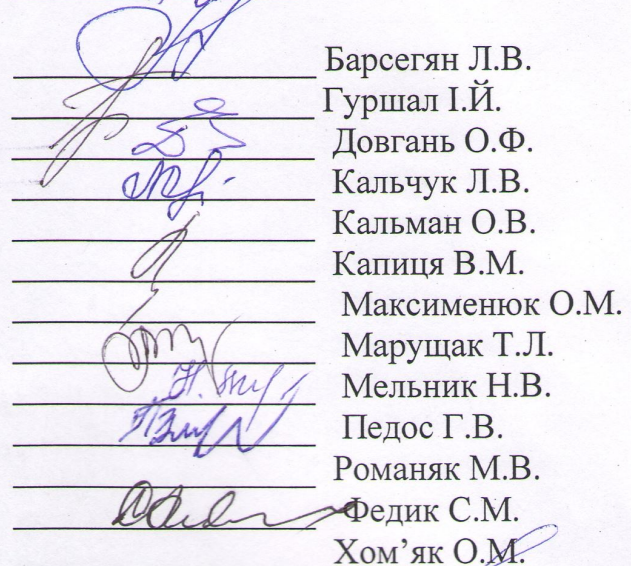 Барсегян Л.В.
Гуршал І.Й.
Довгань О.Ф.
Кальчук Л.В.
Кальман О.В.
Капиця В.М.
Максименюк О.М.
Марущак Т.Л.
Мельник Н.В.
Педос Г.В.
Романяк М.В.
Федик С.М.
Хом’як О.М.